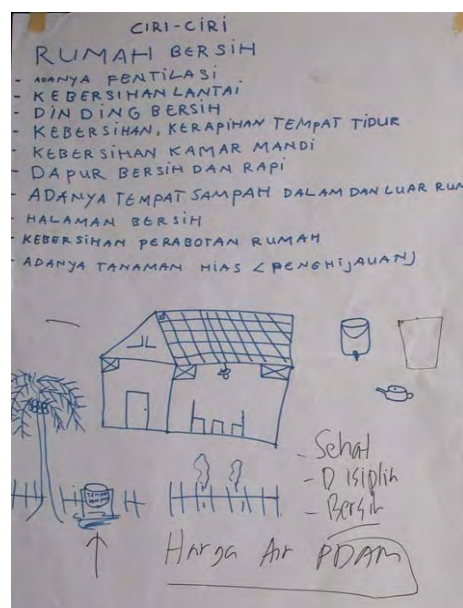 CIRI-CIRI
RUMAH BERSIH
- ADANYA FENTILASI
- KEBERSIHAN LANTAI
- DINDING BERSIH
- KEBERSIHAN, KERAPIHAN TEMPAT TIDUR
- KEBERSIHAN KAMAR MANDI
- DAPUR BERSIH DAN RAPI
- ADANYA TEMPAT SAMPAH DALAM DAN LUAR RUM
- HALAMAN BERSIH
- KEBERSIHAN PERABOTAN RUMAH
- ADANYA TANAMAN HIAS (PENGHIJAUAN)
- Sehat
- Disiplin
- Bersih
TEMPAT SAMPAH
Harga Air PDAM